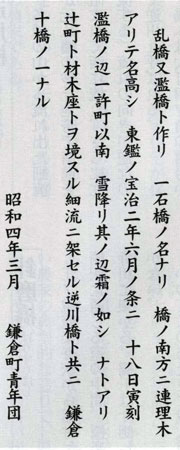 乱橋又濫橋ト作リ 一石橋ノ名ナリ 橋ノ南方ニ連理木
アリテ名高シ 東鑑ノ宝治二年六月ノ条ニ 十八日寅刻
濫橋ノ辺一許町以南 雪降リ其ノ辺霜ノ如シ ナトアリ
辻町ト材木座トヲ境スル細流ニ架セル逆川橋ト共ニ 鎌倉
十橋ノ一ナル
昭和四年三月 鎌倉町青年団